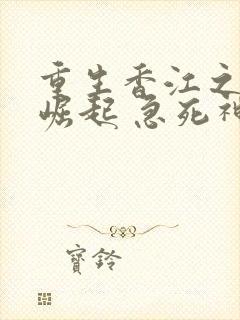 重生香江之
崛起 急死
寳鈴